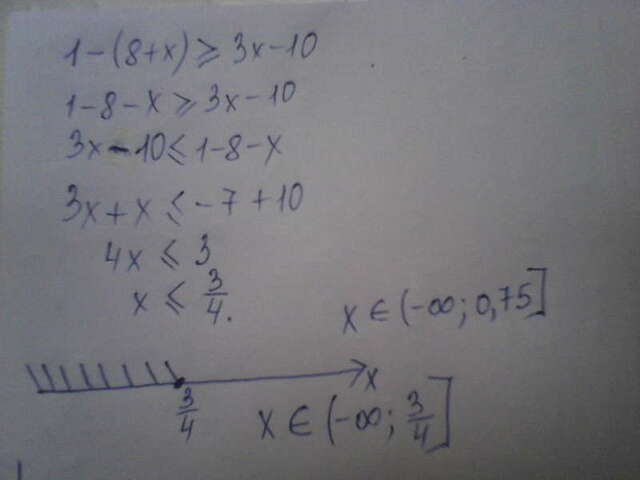 1-(8+x) ⩾ 3x-10
1-8-x ⩾ 3x-10
3x-10 ⩽ 1-8-x
3x+x ⩽ -7+10
4x ⩽ 3
x ⩽ 3/4.
x ∈ (-∞; 0,75]
x
3/4
x ∈ (-∞; 3/4]